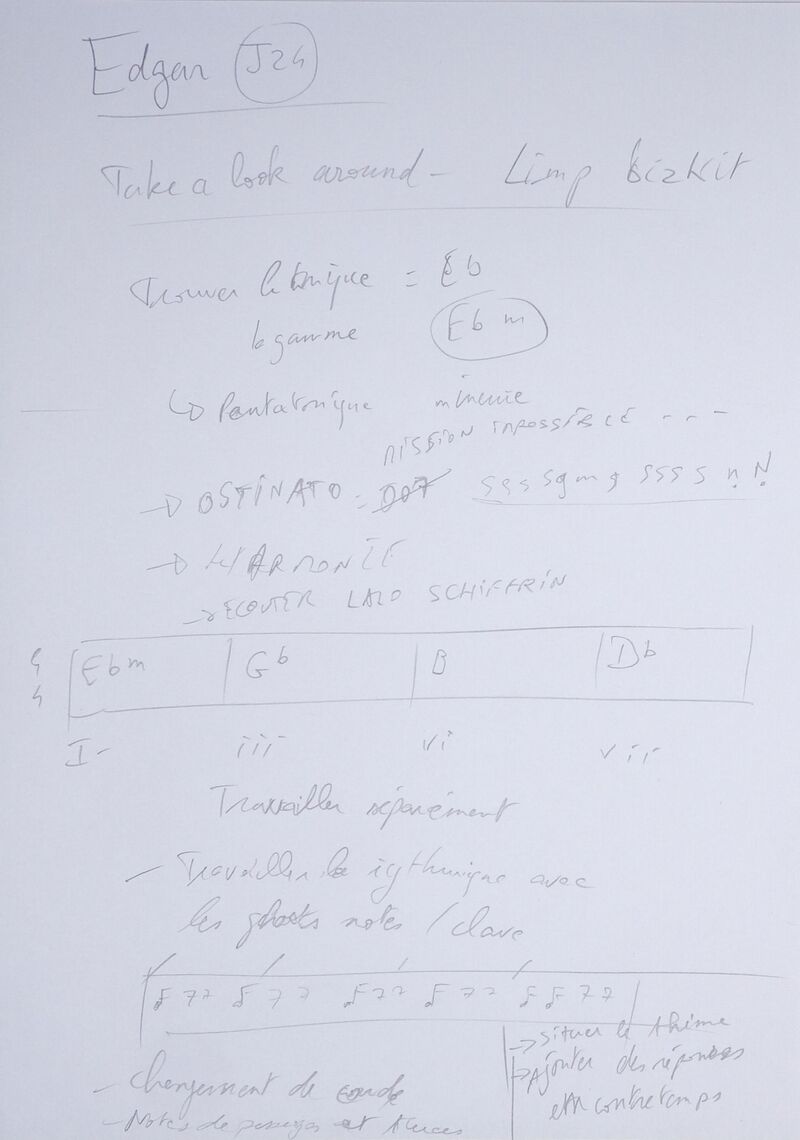 Edgar J24
Take a look around - Limp bizkit
Trouver la tonique = Eb
la gamme Ebm
↳ Pentatonique mineure
MISSION IMPOSSIBLE ---
→ OSTINATO =
→ HARMONIE
→ ECOUTER LALO SCHIFFRIN
4/4 Ebm | Gb | B | Db
I- iii vi vii
Travailler séparément
- Travailler la rythmique avec
les ghosts notes / clave
→ situer le thème
→ Ajouter des réponses
en contretemps
- Changement de
- Notes de passages et